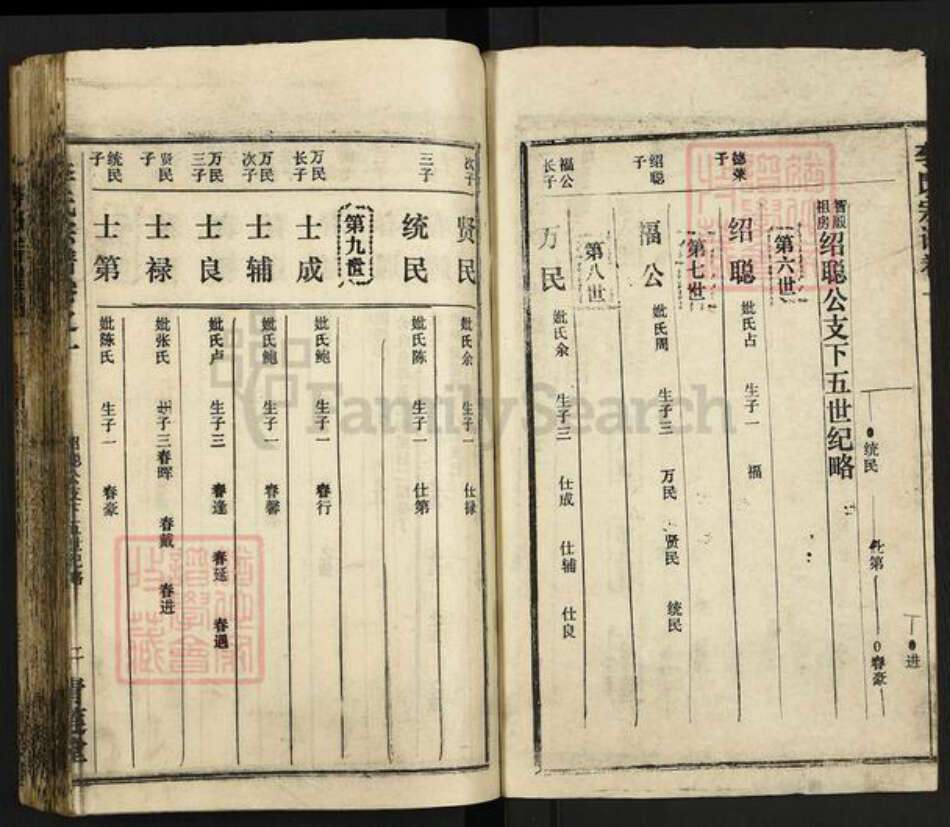 进
统民
士第
春豪
智殿祖房绍聪公支下五世纪略
第六世
德荣子
绍聪
妣氏占 生子一 福
第七世
绍聪子
福公
妣氏周 生子三 万民 贤民 统民
第八世
福公长子
万民
妣氏余 生子三 仕成 仕辅 仕良
次子
贤民
妣氏余 生子一 仕禄
三子
统民
妣氏陈 生子一 仕第
第九世
万民长子
士成
妣氏鲍 生子一 春行
万民次子
士辅
妣氏鲍 生子一 春馨
万民三子
士良
妣氏卢 生子三 春逢 春延 春遇
贤民子
士禄
妣张氏 生子三 春晖 春戴 春进
统民子
士第
妣陈氏 生子一 春豪
二
FamilySearch